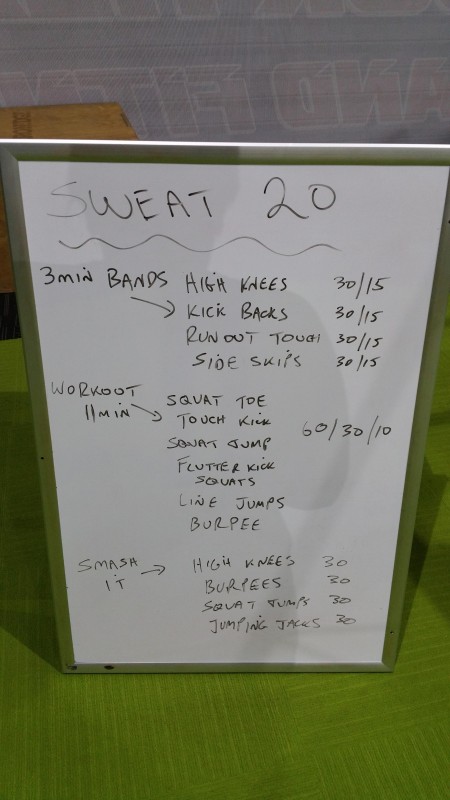 AND FIT
SWEAT 20
3MIN BANDS HIGH KNEES 30/15
KICK BACKS 30/15
RUN OUT TOUCH 30/15
SIDE SKIPS 30/15
WORKOUT SQUAT TOE
11MIN TOUCH KICK 60/30/10
SQUAT JUMP
FLUTTER KICK
SQUATS
LINE JUMPS
BURPEE
SMASH HIGH KNEES 30
IT BURPEES 30
SQUAT JUMPS 30
JUMPING JACKS 30